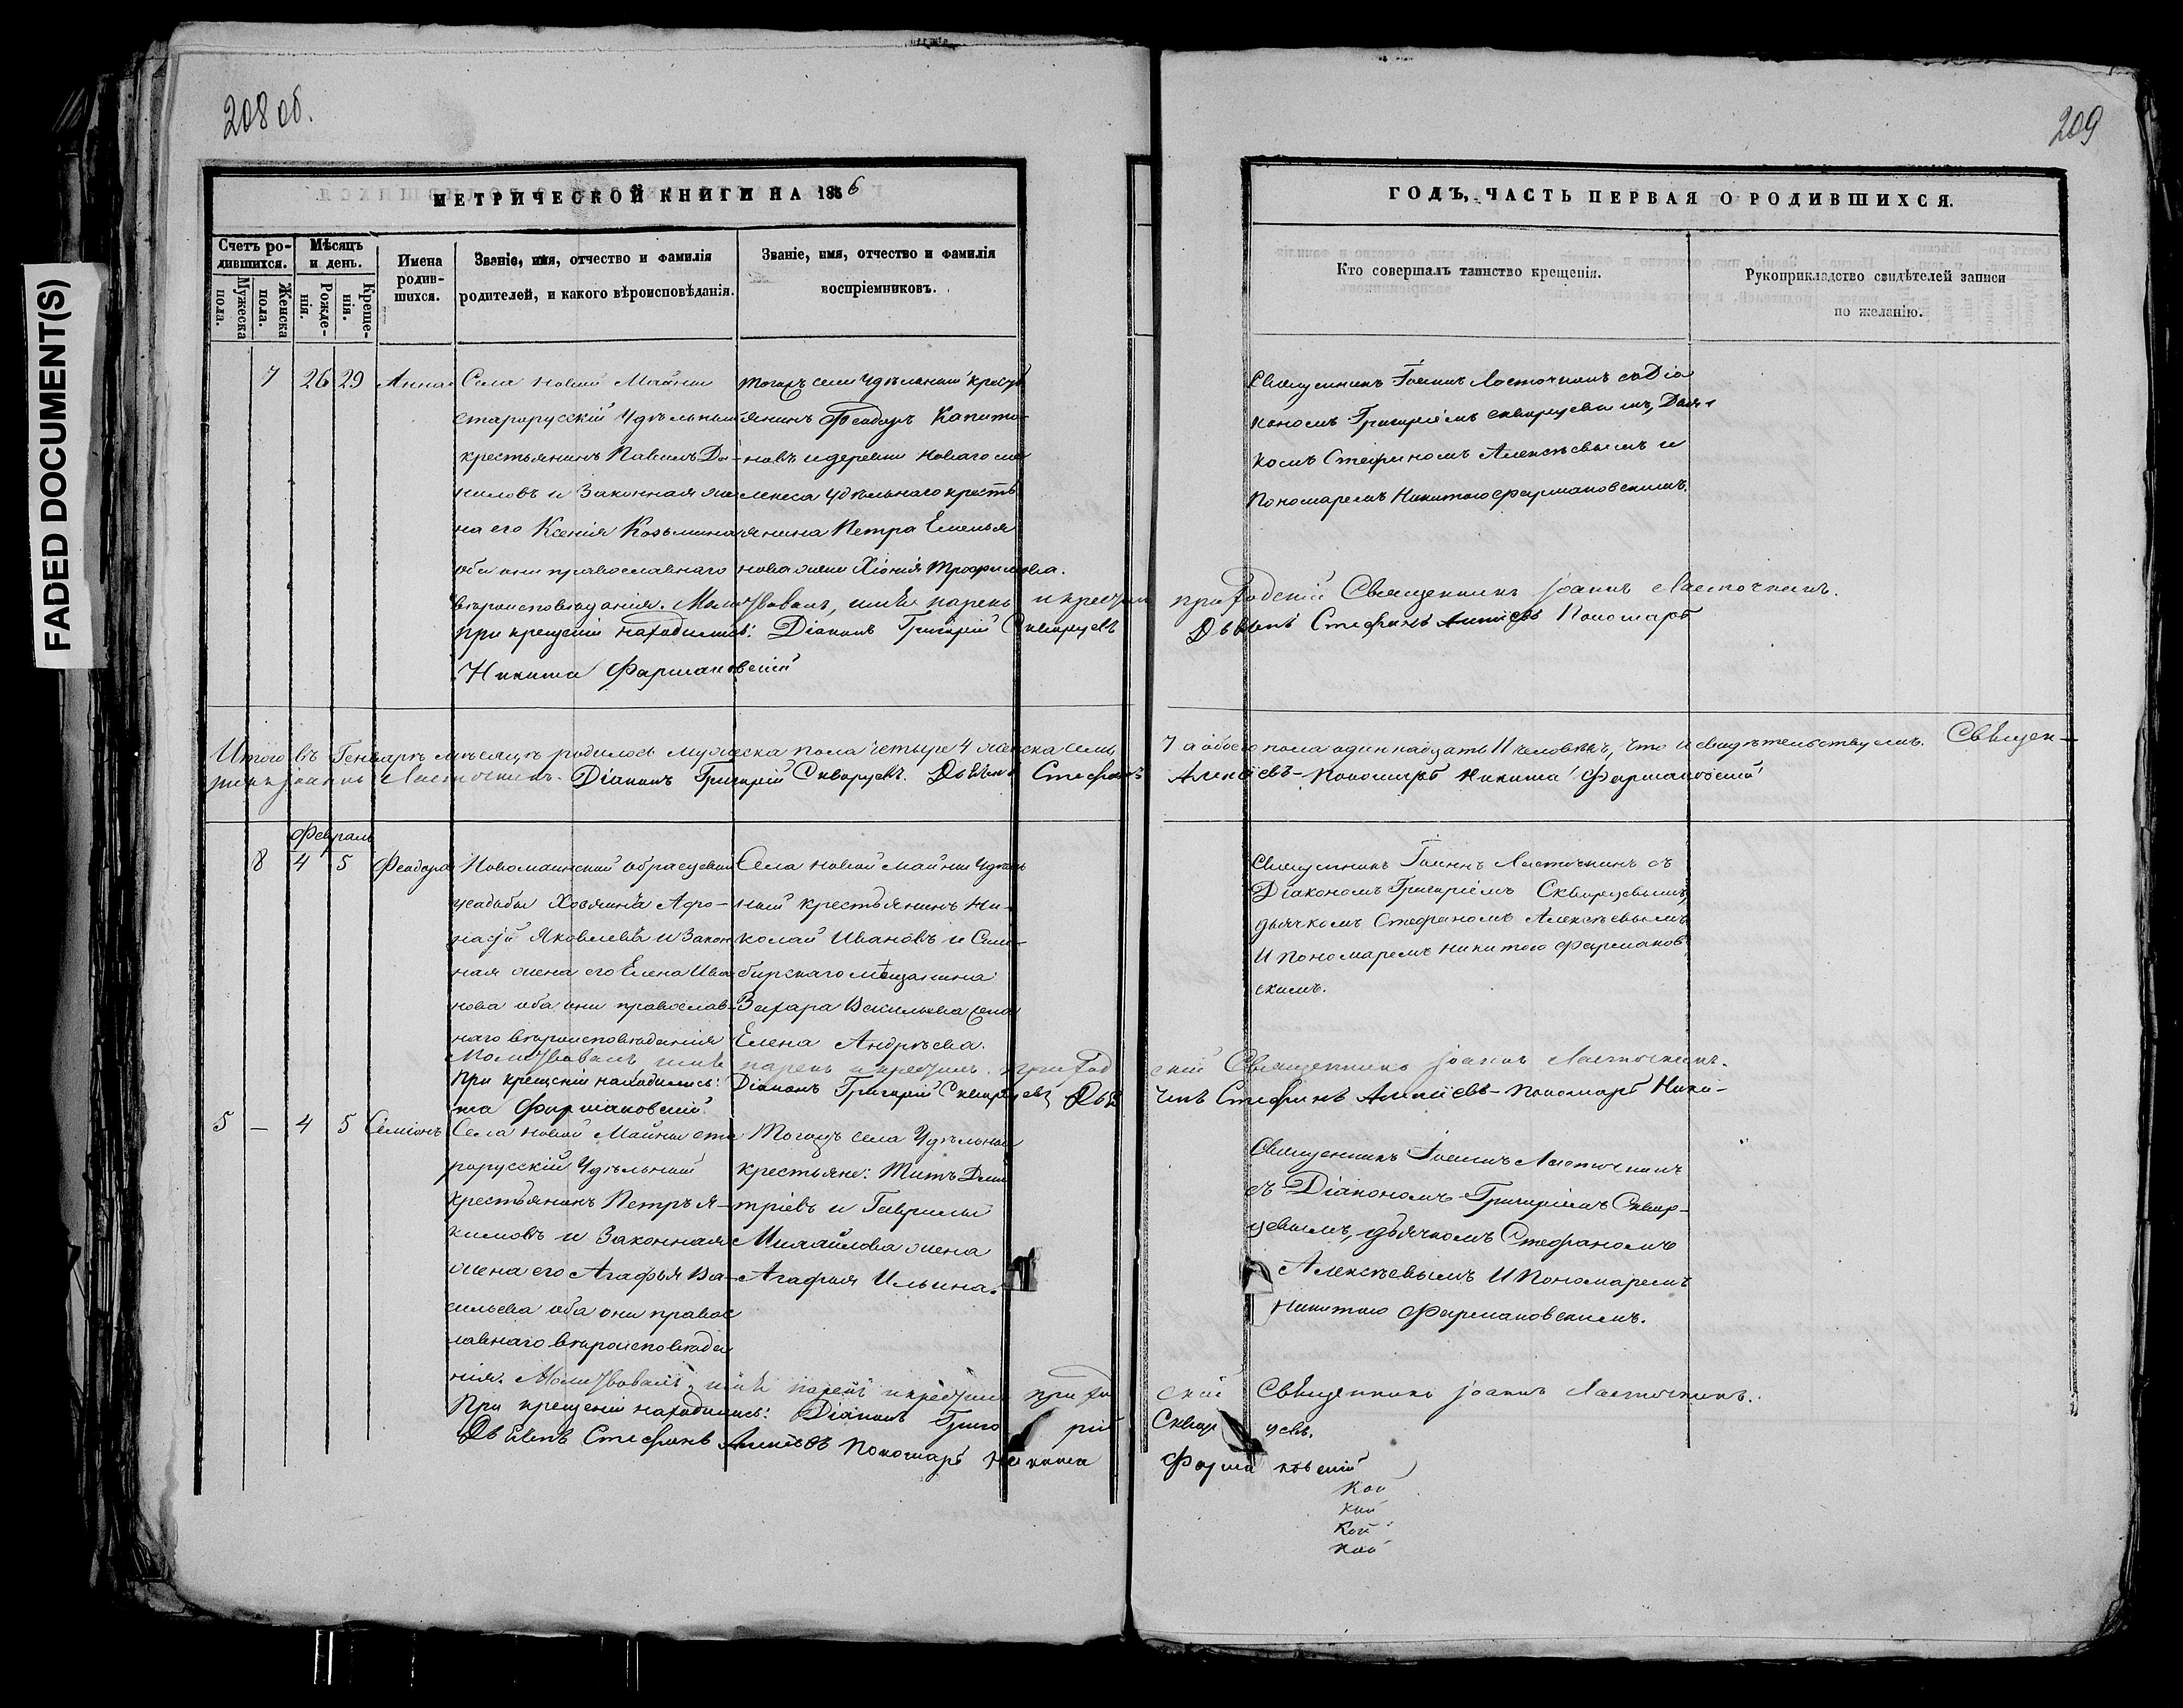 208 об.
209
FADED DOCUMENT(S)
МЕТРИЧЕСКОЙ КНИГИ НА 1856
ГОДЪ, ЧАСТЬ ПЕРВАЯ О РОДИВШИХСЯ.
Счетъ родившихся.
Мужеска пола.
Женска пола.
Мѣсяцъ и день.
Рожденія.
Крещенія.
Имена родившихся.
Званіе, имя, отчество и фамилія родителей, и какого вѣроисповѣданія.
Званіе, имя, отчество и фамилія воспріемниковъ.
Кто совершалъ таинство крещенія.
Рукоприкладство свидѣтелей записи по желанію.
7 26 29 Анна
Села Новой Майны
старорусскій Удѣльный
крестьянинъ Павелъ Да-
ниловъ и Законная же
на его Ксенія Козьмина
оба они православнаго
вѣроисповѣданія.
Тогожъ села Удѣльный крестья
янинъ Феодоръ Капито-
новъ и деревни Новаго
Удѣльнаго кресть
янина Петра Емелья
нова жена Хіонія Трофимова.
Священникъ Іоаннъ Ласточкинъ съ Діа
кономъ Григоріемъ Скворцевымъ, Дьяч
комъ Стефаномъ Алексѣевымъ и
Пономаремъ Никитою Фармаковскимъ.
Молитвовалъ, имя нарекъ и крестилъ приходскій Священникъ Іоаннъ Ласточкинъ.
При крещеніи находились: Діаконъ Григорій Скворцевъ Дьячекъ Стефанъ Алексіевъ Пономарь
Никита Фармаковскій
Итого въ Генварѣ мѣсяцѣ родилось мужеска пола четыре 4 женска семь 7 а обоего пола одиннадцать 11 человѣкъ, что и свидѣтельствуемъ. Священ-
никъ Іоаннъ Ласточкинъ. Діаконъ Григорій Скворцевъ. Дьячекъ Стефанъ Алексіевъ - Пономарь Никита Фармаковскій
Февраль
8 4 5 Феодора
Новомаинской образцовой
усадьбы Хозяина Афо-
насій Яковлевъ и Закон
ная жена его Елена Ива
нова оба они православ-
наго вѣроисповѣданія
Села Новой Майны Удѣль
ный крестьянинъ Ни-
колай Ивановъ и Сим-
бирскаго мѣщанина
Захара Васильева жена
Елена Андрѣева.
Священникъ Іоаннъ Ласточкинъ съ
Діакономъ Григоріемъ Скворцевымъ,
дьячкомъ Стефаномъ Алексѣевымъ
И пономаремъ Никитою Фармаков
скимъ.
Молитвовалъ имя нарекъ и крестилъ приходскій Священникъ Іоаннъ Ласточкинъ.
При крещеніи находились: Діаконъ Григорій Скворцевъ Дьячекъ Стефанъ Алексіевъ - Пономарь Ники-
та Фармаковскій
5 — 4 5 Симіонъ
Села Новой Майны ста
рорусскій Удѣльный
крестьянинъ Петръ Я-
кимовъ и Законная
жена его Агафья Ва-
сильева оба они правос
лавнаго вѣроисповѣда
нія.
Тогожъ села Удѣльные
крестьяне: Титъ Дми
тріевъ и Гаврилы
Михайлова жена
Агафья Ильина.
Священникъ Іоаннъ Ласточкинъ
съ Діакономъ Григоріемъ Сквор-
цевымъ, дьячкомъ Стефаномъ
Алексѣевымъ И Пономаремъ
Никитою Фармаковскимъ.
Молитвовалъ, имя нарекъ и крестилъ приходскій Священникъ Іоаннъ Ласточкинъ.
При крещеніи находились: Діаконъ Григорій Скворцевъ.
Дьячекъ Стефанъ Алексіевъ Пономарь Никита Фармаковскій
кой
кой
кой
кой